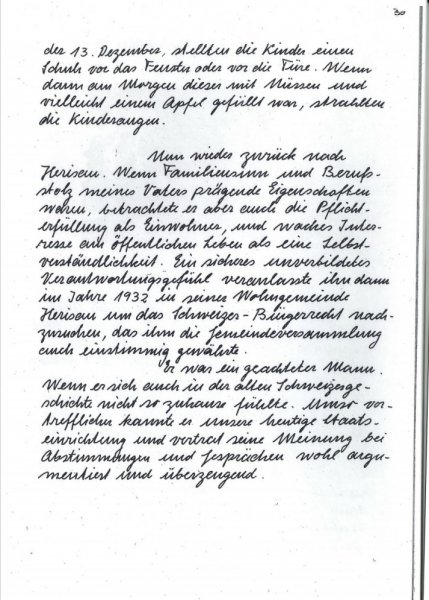 30
der 13. Dezember, stellten die Kinder einen
Schuh vor das Fenster oder vor die Türe. Wenn
dann am Morgen dieser mit Nüssen und
vielleicht einem Apfel gefüllt war, strahlten
die Kinderaugen.
Nun wieder zurück nach
Herisau. Wenn Familiensinn und Berufs-
stolz meines Vaters prägende Eigenschaften
waren, betrachtete er aber auch die Pflicht-
erfüllung als Einwohner, und waches Inter-
resse am öffentlichen Leben als eine Selbst-
verständlichkeit. Ein sicheres unverbildetes
Verantwortungsgefühl veranlasste ihn dann
im Jahre 1932 in seiner Wohngemeinde
Herisau um das Schweizer-Bürgerrecht nach-
zusuchen, das ihm die Gemeindeversammlung
auch einstimmig gewährte.
Er war ein geachteter Mann.
Wenn er sich auch in der alten Schweizerge-
schichte nicht so zuhause fühlte. Umso vor-
trefflicher kannte er unsere heutige Staats-
einrichtung und vertrat seine Meinung bei
Abstimmungen und Gesprächen wohl argu-
mentiert und überzeugend.